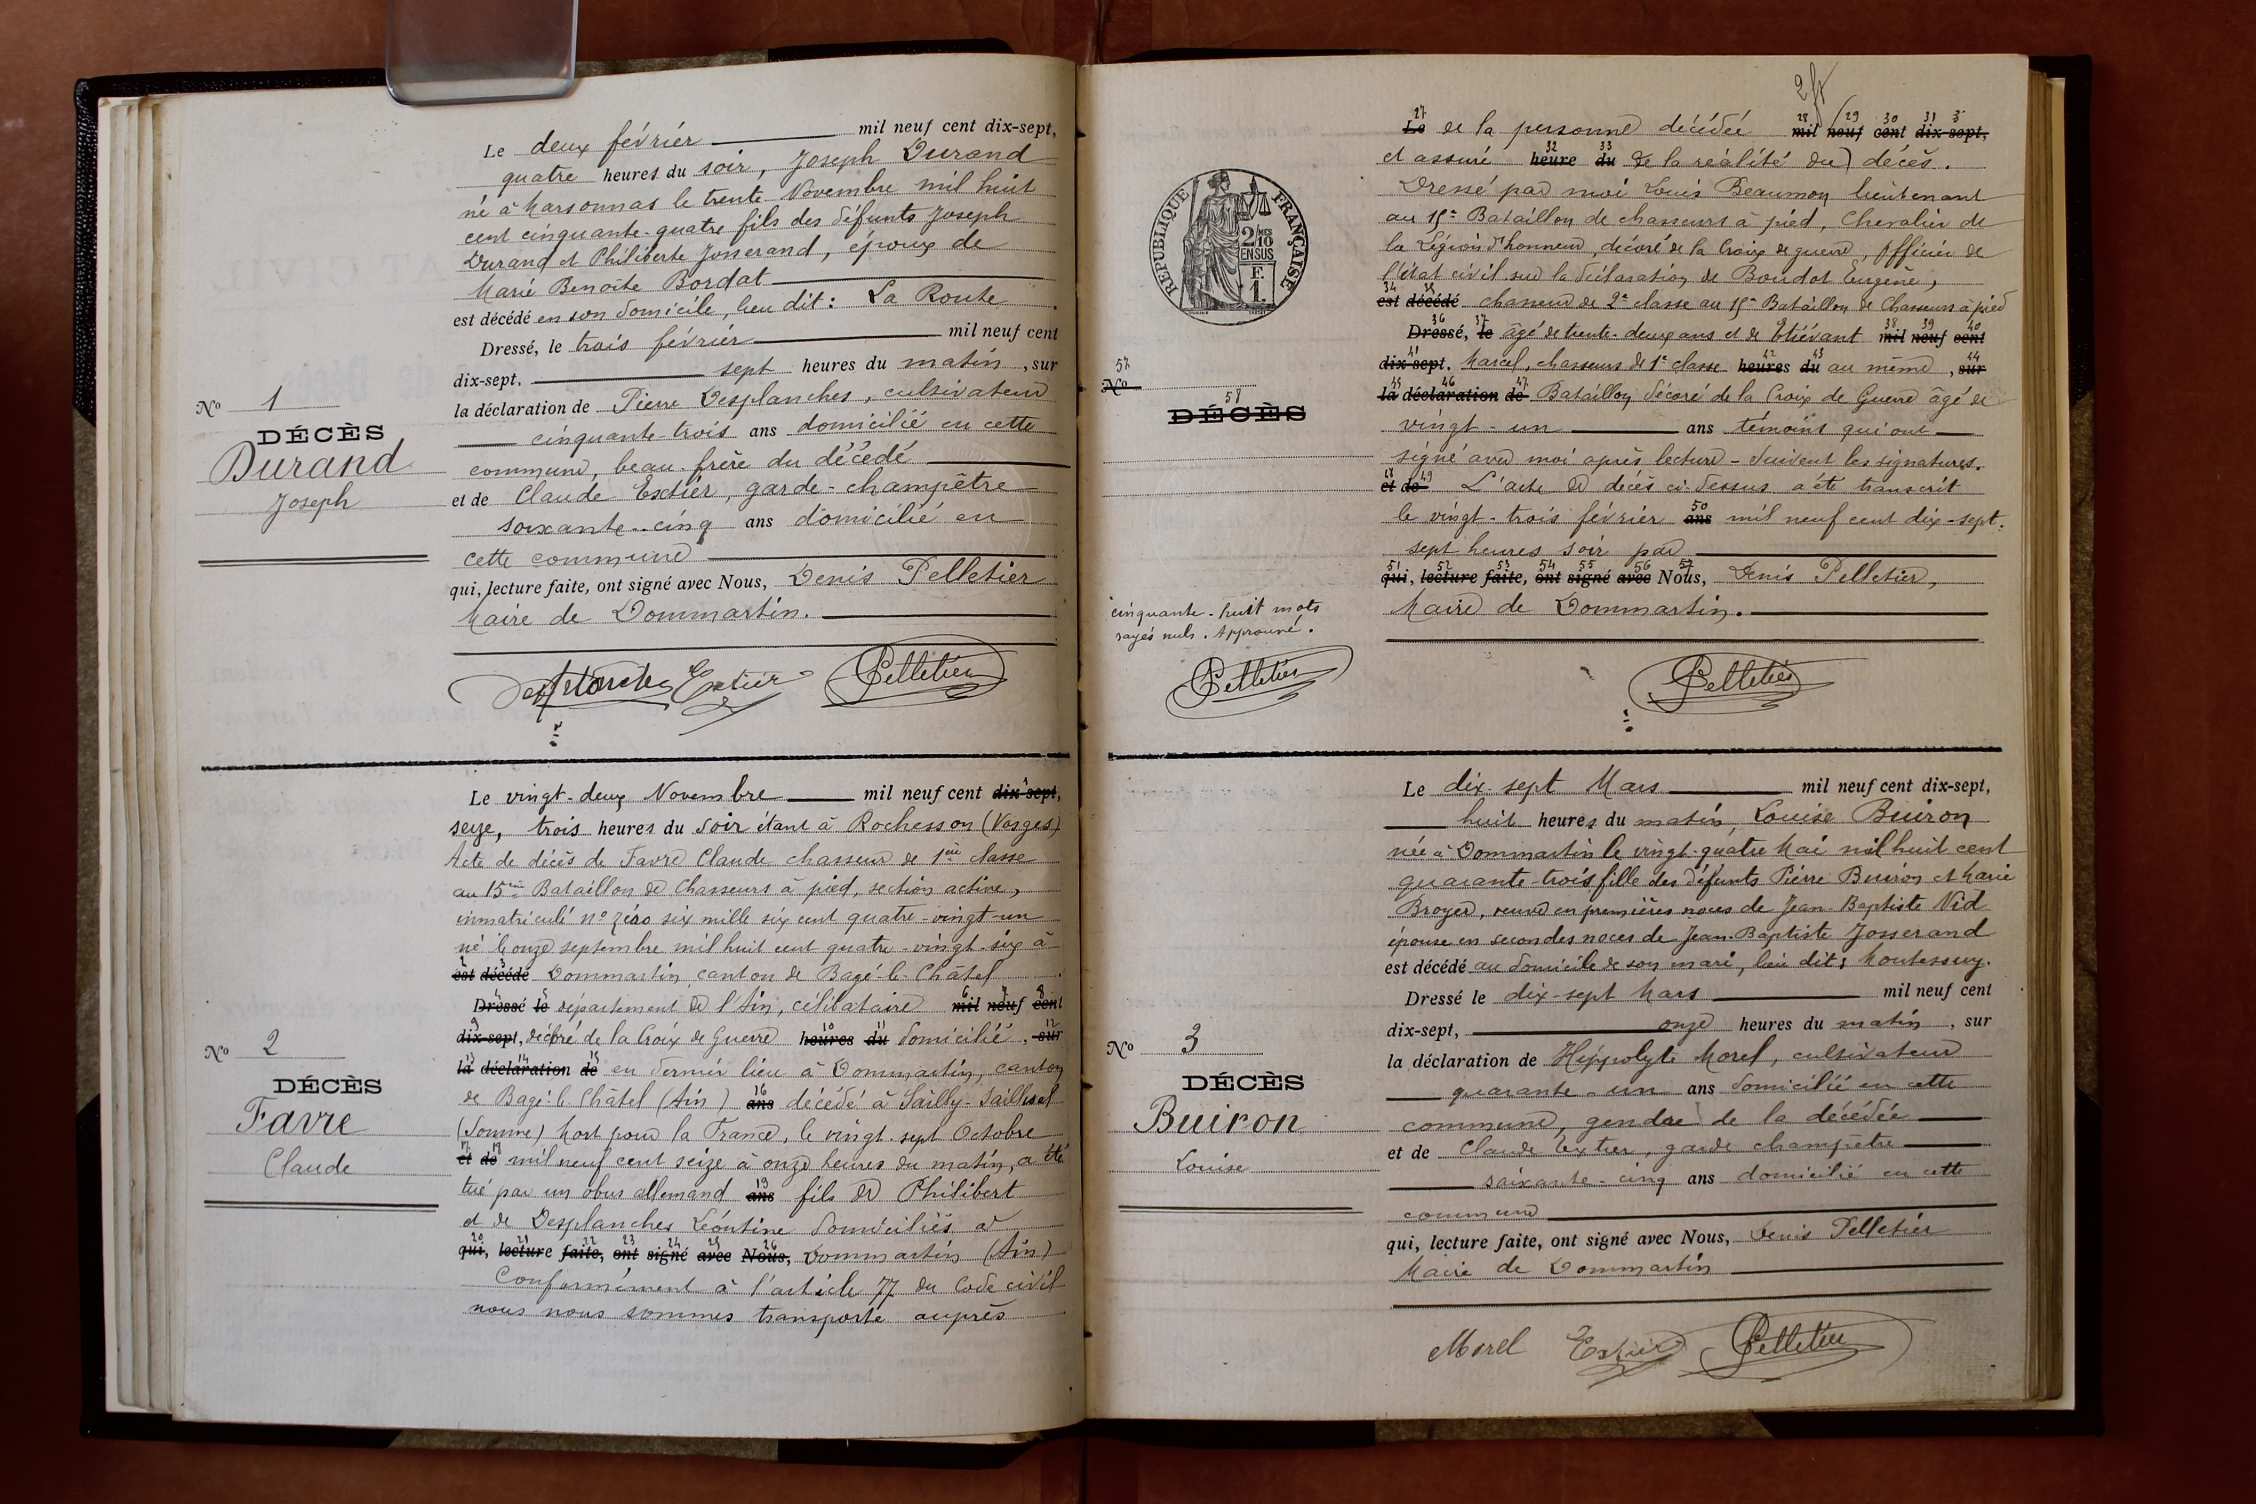 Le deux février mil neuf cent dix-sept,
quatre heures du soir, Joseph Durand
né à Marsonnas le trente Novembre mil huit
cent cinquante-quatre fils des défunts Joseph
Durand et Philiberte Josserand, époux de
Marie Benoite Bordat
est décédé en son domicile, lieu dit : La Route
Dressé, le trois février mil neuf cent
dix-sept, sept heures du matin, sur
la déclaration de Pierre Desplanches, cultivateur
cinquante-trois ans domicilié en cette
commune, beau-frère du décédé
et de Claude Extier, garde-champêtre
soixante-cinq ans domicilié en
cette commune
qui, lecture faite, ont signé avec Nous, Denis Pelletier
Maire de Dommartin.
Nº 1
DÉCÈS
Durand
Joseph
Desplanches Extier Pelletier
Le vingt-deux Novembre mil neuf cent dix-sept,
seize, trois heures du soir étant à Rochesson (Vosges)
Acte de décès de Favre Claude chasseur de 1ère classe
au 15ème Bataillon de Chasseurs à pied, section active,
immatriculé nº zéro six mille six cent quatre-vingt-un
né le onze septembre mil huit cent quatre-vingt-six à
2 3
est décédé Dommartin canton de Bagé-le-Châtel
4 5 6 7 8
Dressé le département de l'Ain, célibataire mil neuf cent
9 10 11 12
dix-sept, décoré de la Croix de Guerre heures du domicilié, sur
13 14 15
la déclaration de en dernier lieu à Dommartin, canton
16
de Bagé-le-Châtel (Ain) ans décédé à Sailly-Saillisel
(Somme) Mort pour la France, le vingt-sept Octobre
17 18
et de mil neuf cent seize à onze heures du matin, a été
19
tué par un obus allemand ans fils de Philibert
et de Desplanches Léontine domiciliés à
20 21 22 23 24 25 26
qui, lecture faite, ont signé avec Nous, Dommartin (Ain)
Conformément à l'article 77 du Code civil
nous nous sommes transporté auprès
Nº 2
DÉCÈS
Favre
Claude
27 28 29 30 31
Le de la personne décédée mil neuf cent dix-sept,
32 33
et assuré heure du de la réalité du décès.
Dressé par moi Louis Beaumon lieutenant
au 15e Bataillon de chasseurs à pied, Chevalier de
la Légion d'honneur, décoré de la Croix de guerre, Officier de
l'état civil sur la déclaration de Boudot Eugène,
34 35
est décédé chasseur de 2e classe au 15e Bataillon de Chasseurs à pied
36 37 38 39 40
Dressé, le âgé de trente-deux ans et de Etiévant mil neuf cent
41 42 43 44
dix-sept. Marcel, chasseur de 1e classe heures du au même, sur
45 46 47
la déclaration de Bataillon décoré de la Croix de Guerre âgé de
vingt-un ans témoins qui ont
signé avec moi après lecture - Suivent les signatures.
48 49
et de L'acte de décès ci-dessus a été transcrit
50
le vingt-trois février ans mil neuf cent dix-sept.
sept heures soir par
51 52 53 54 55 56 57
qui, lecture faite, ont signé avec Nous, Denis Pelletier,
Maire de Dommartin.
REPUBLIQUE FRANÇAISE
2/10
EN SUS
F.
1.
57
Nº
58
DÉCÈS
cinquante-huit mots
rayés nuls. Approuvé.
Pelletier
Pelletier
Le dix-sept Mars mil neuf cent dix-sept,
huit heures du matin, Louise Buiron
née à Dommartin le vingt-quatre Mai mil huit cent
quarante-trois, fille des défunts Pierre Buiron et Marie
Broyer, veuve en premières noces de Jean-Baptiste Nid
épouse en secondes noces de Jean-Baptiste Josserand
est décédé au domicile de son mari, lieu dit : Montessuy.
Dressé le dix-sept Mars mil neuf cent
dix-sept, onze heures du matin, sur
la déclaration de Hyppolyte Morel, cultivateur
quarante-un ans domicilié en cette
commune, gendre de la décédée
et de Claude Extier, garde champêtre
soixante-cinq ans domicilié en cette
commune
qui, lecture faite, ont signé avec Nous, Denis Pelletier
Maire de Dommartin
Nº 3
DÉCÈS
Buiron
Louise
Morel Extier Pelletier